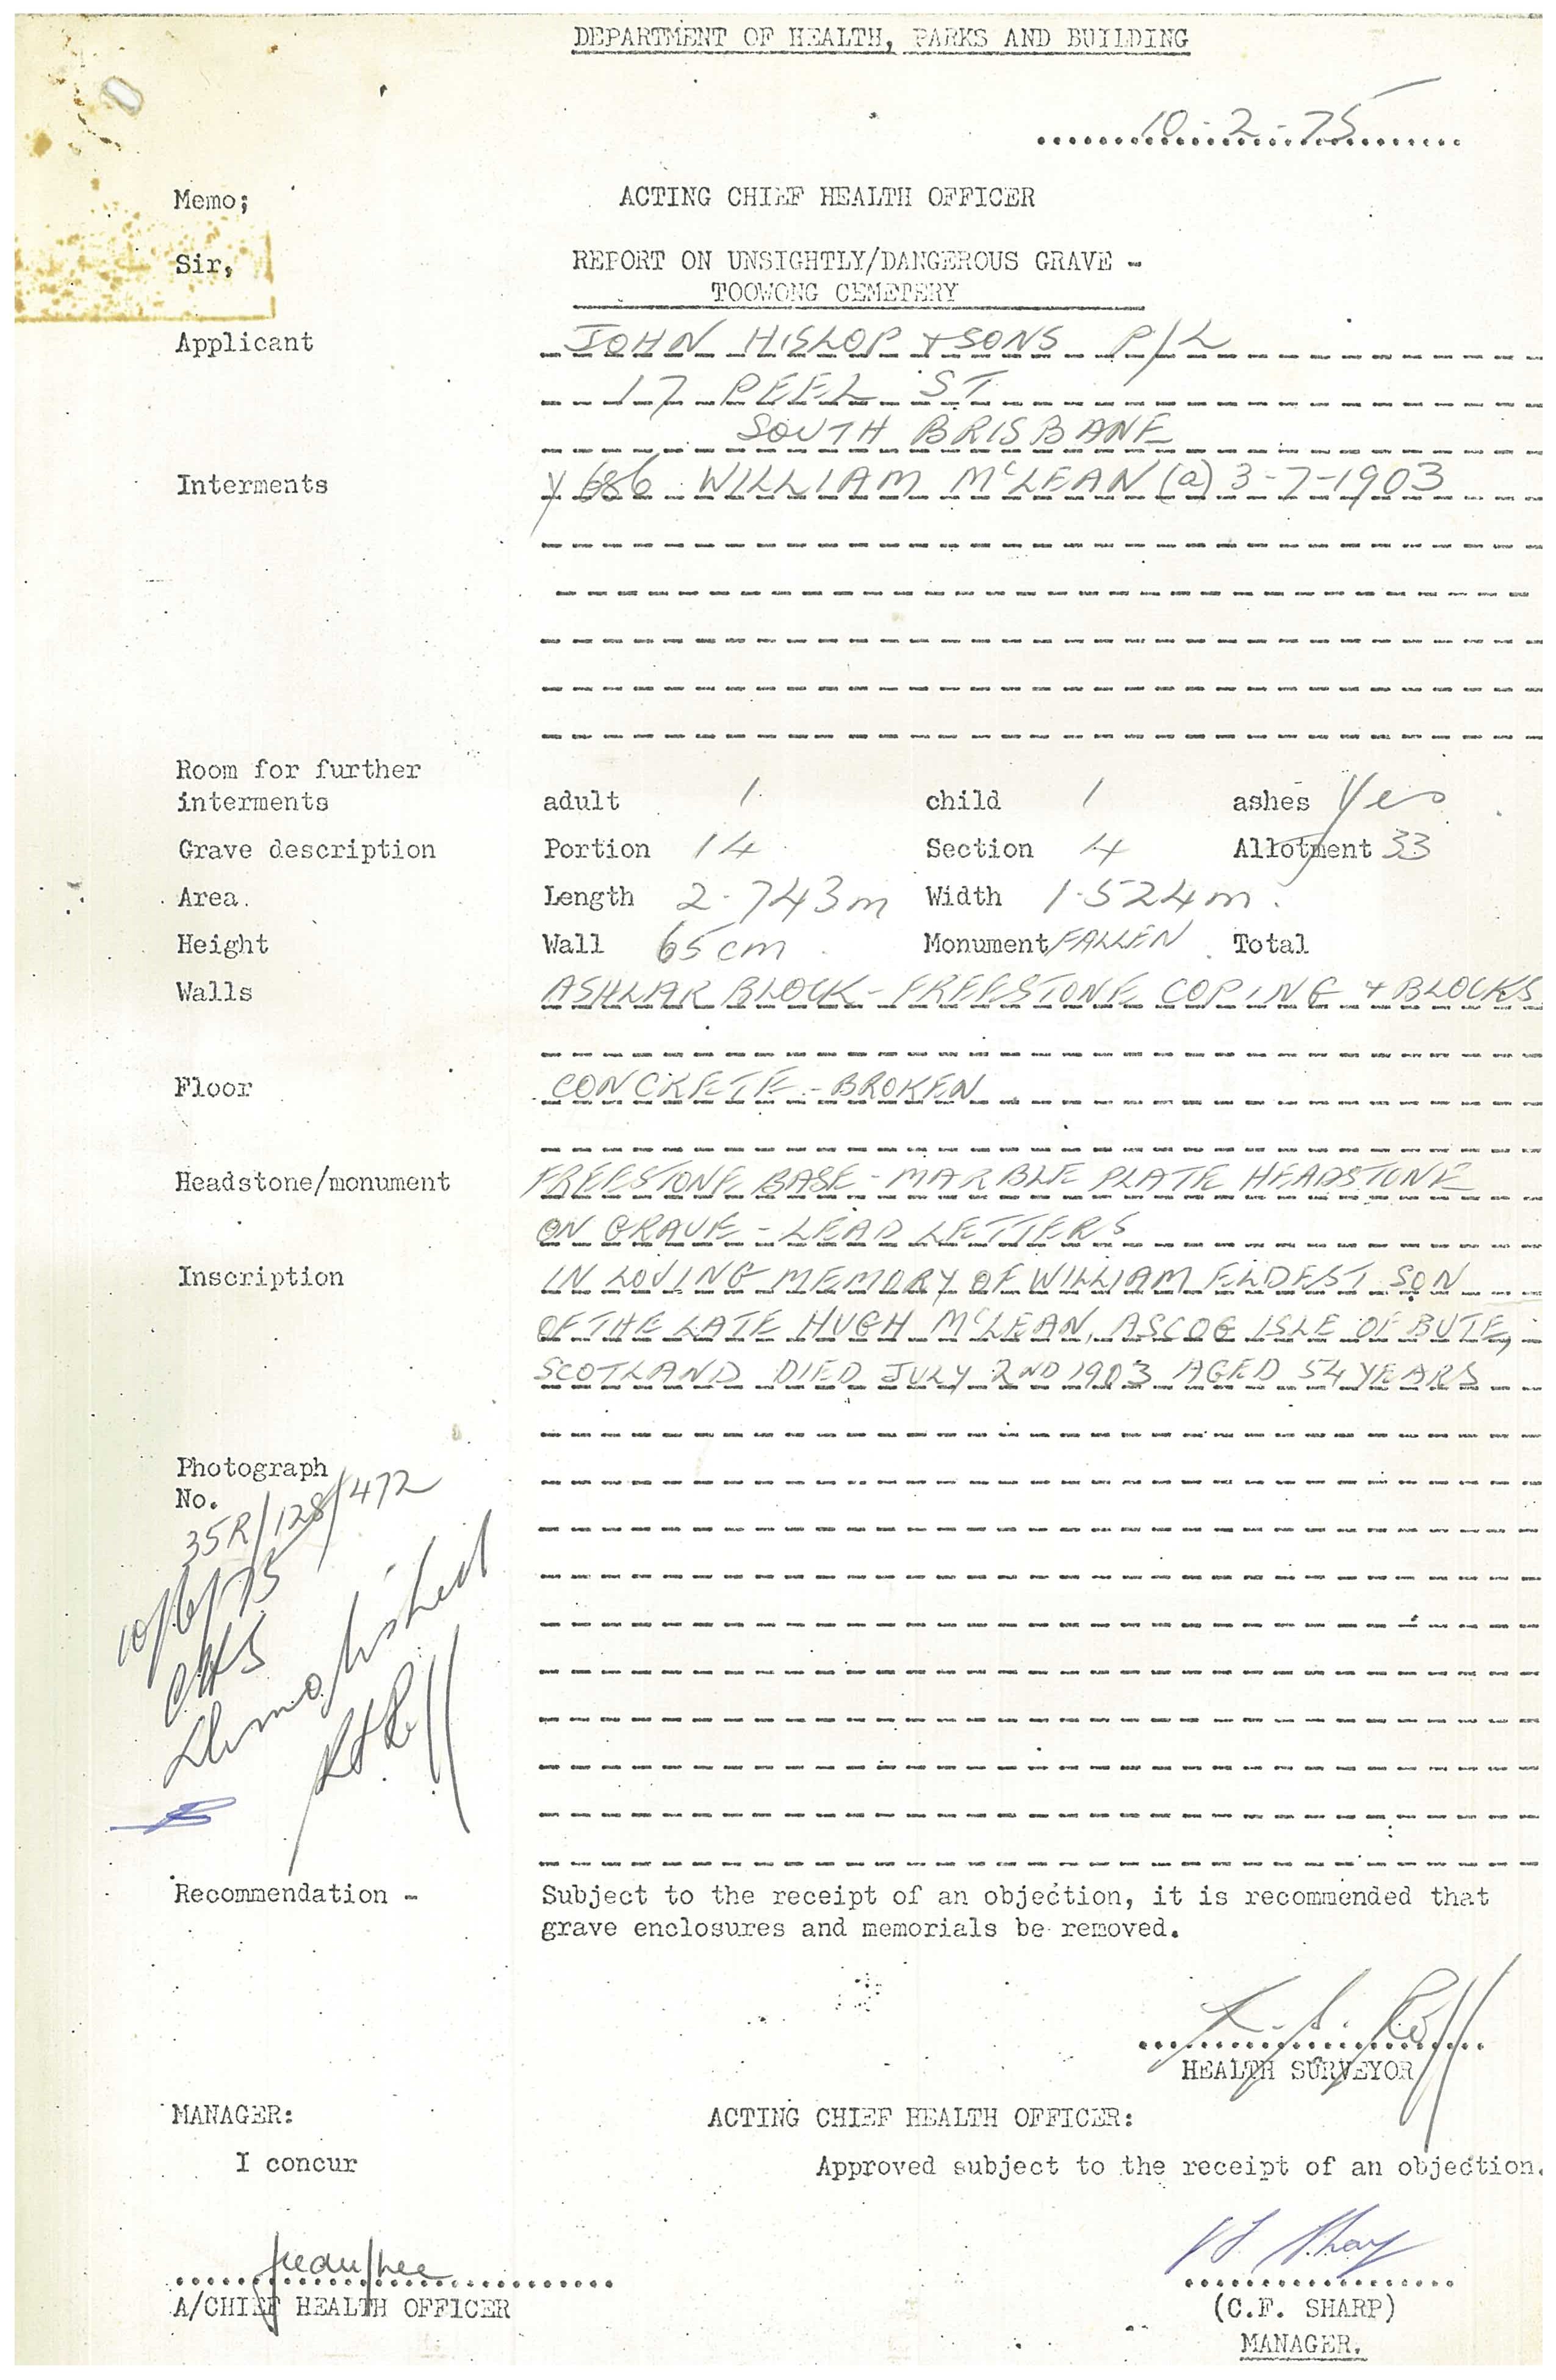 DEPARTMENT OF HEALTH, PARKS AND BUILDING
10-2-75
Memo; ACTING CHIEF HEALTH OFFICER
Sir, REPORT ON UNSIGHTLY/DANGEROUS GRAVE -
TOOWONG CEMETERY
Applicant JOHN HISLOP & SONS P/L
17 PEEL ST
SOUTH BRISBANE
Interments Y686 WILLIAM McLEAN (a) 3-7-1903
Room for further
interments adult 1 child 1 ashes Yes
Grave description Portion 14 Section 4 Allotment 33
Area. Length 2.743m Width 1.524m.
Height Wall 65cm Monument FALLEN Total
Walls ASHLAR BLOCK - FREESTONE COPING & BLOCKS
Floor CONCRETE - BROKEN
Headstone/monument FREESTONE BASE - MARBLE PLATE HEADSTONE
ON GRAVE - LEAD LETTERS
Inscription IN LOVING MEMORY OF WILLIAM ELDEST SON
OF THE LATE HUGH McLEAN, ASCOG ISLE OF BUTE,
SCOTLAND DIED JULY 2ND 1903 AGED 54 YEARS
Photograph
No.
35R/128/472
10/6/75
CHS
Demolished
Recommendation - Subject to the receipt of an objection, it is recommended that
grave enclosures and memorials be removed.
HEALTH SURVEYOR
MANAGER: ACTING CHIEF HEALTH OFFICER:
I concur Approved subject to the receipt of an objection.
A/CHIEF HEALTH OFFICER (C.F. SHARP)
MANAGER.